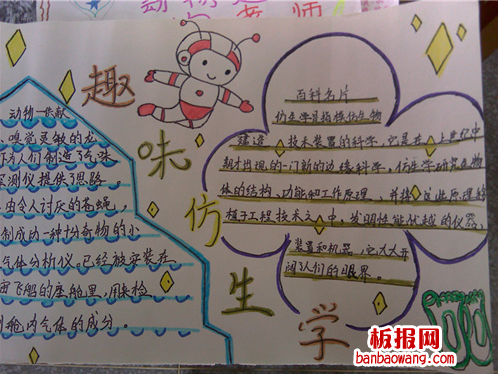 动物与老师
趣味仿生学
动物一贡献
、嗅觉灵敏的龙
为人们制造了气味
探测仪提供了思路，
由令人讨厌的苍蝇，
制成功一种十分奇特的小
气体分析仪。已经被安装在
宙飞船的座舱里，用来检
舱内气体的成分。
百科名片
仿生学是指模仿生物
建造技术装置的科学，它是在上世纪中
期才出现的一门新的边缘科学。仿生学研究生物
体的结构、功能和工作原理，并将这些原理移
植于工程技术之中，发明性能优越的仪器、
装置和机器，它大大开
阔人们的眼界。
板报网
banbaowang.com